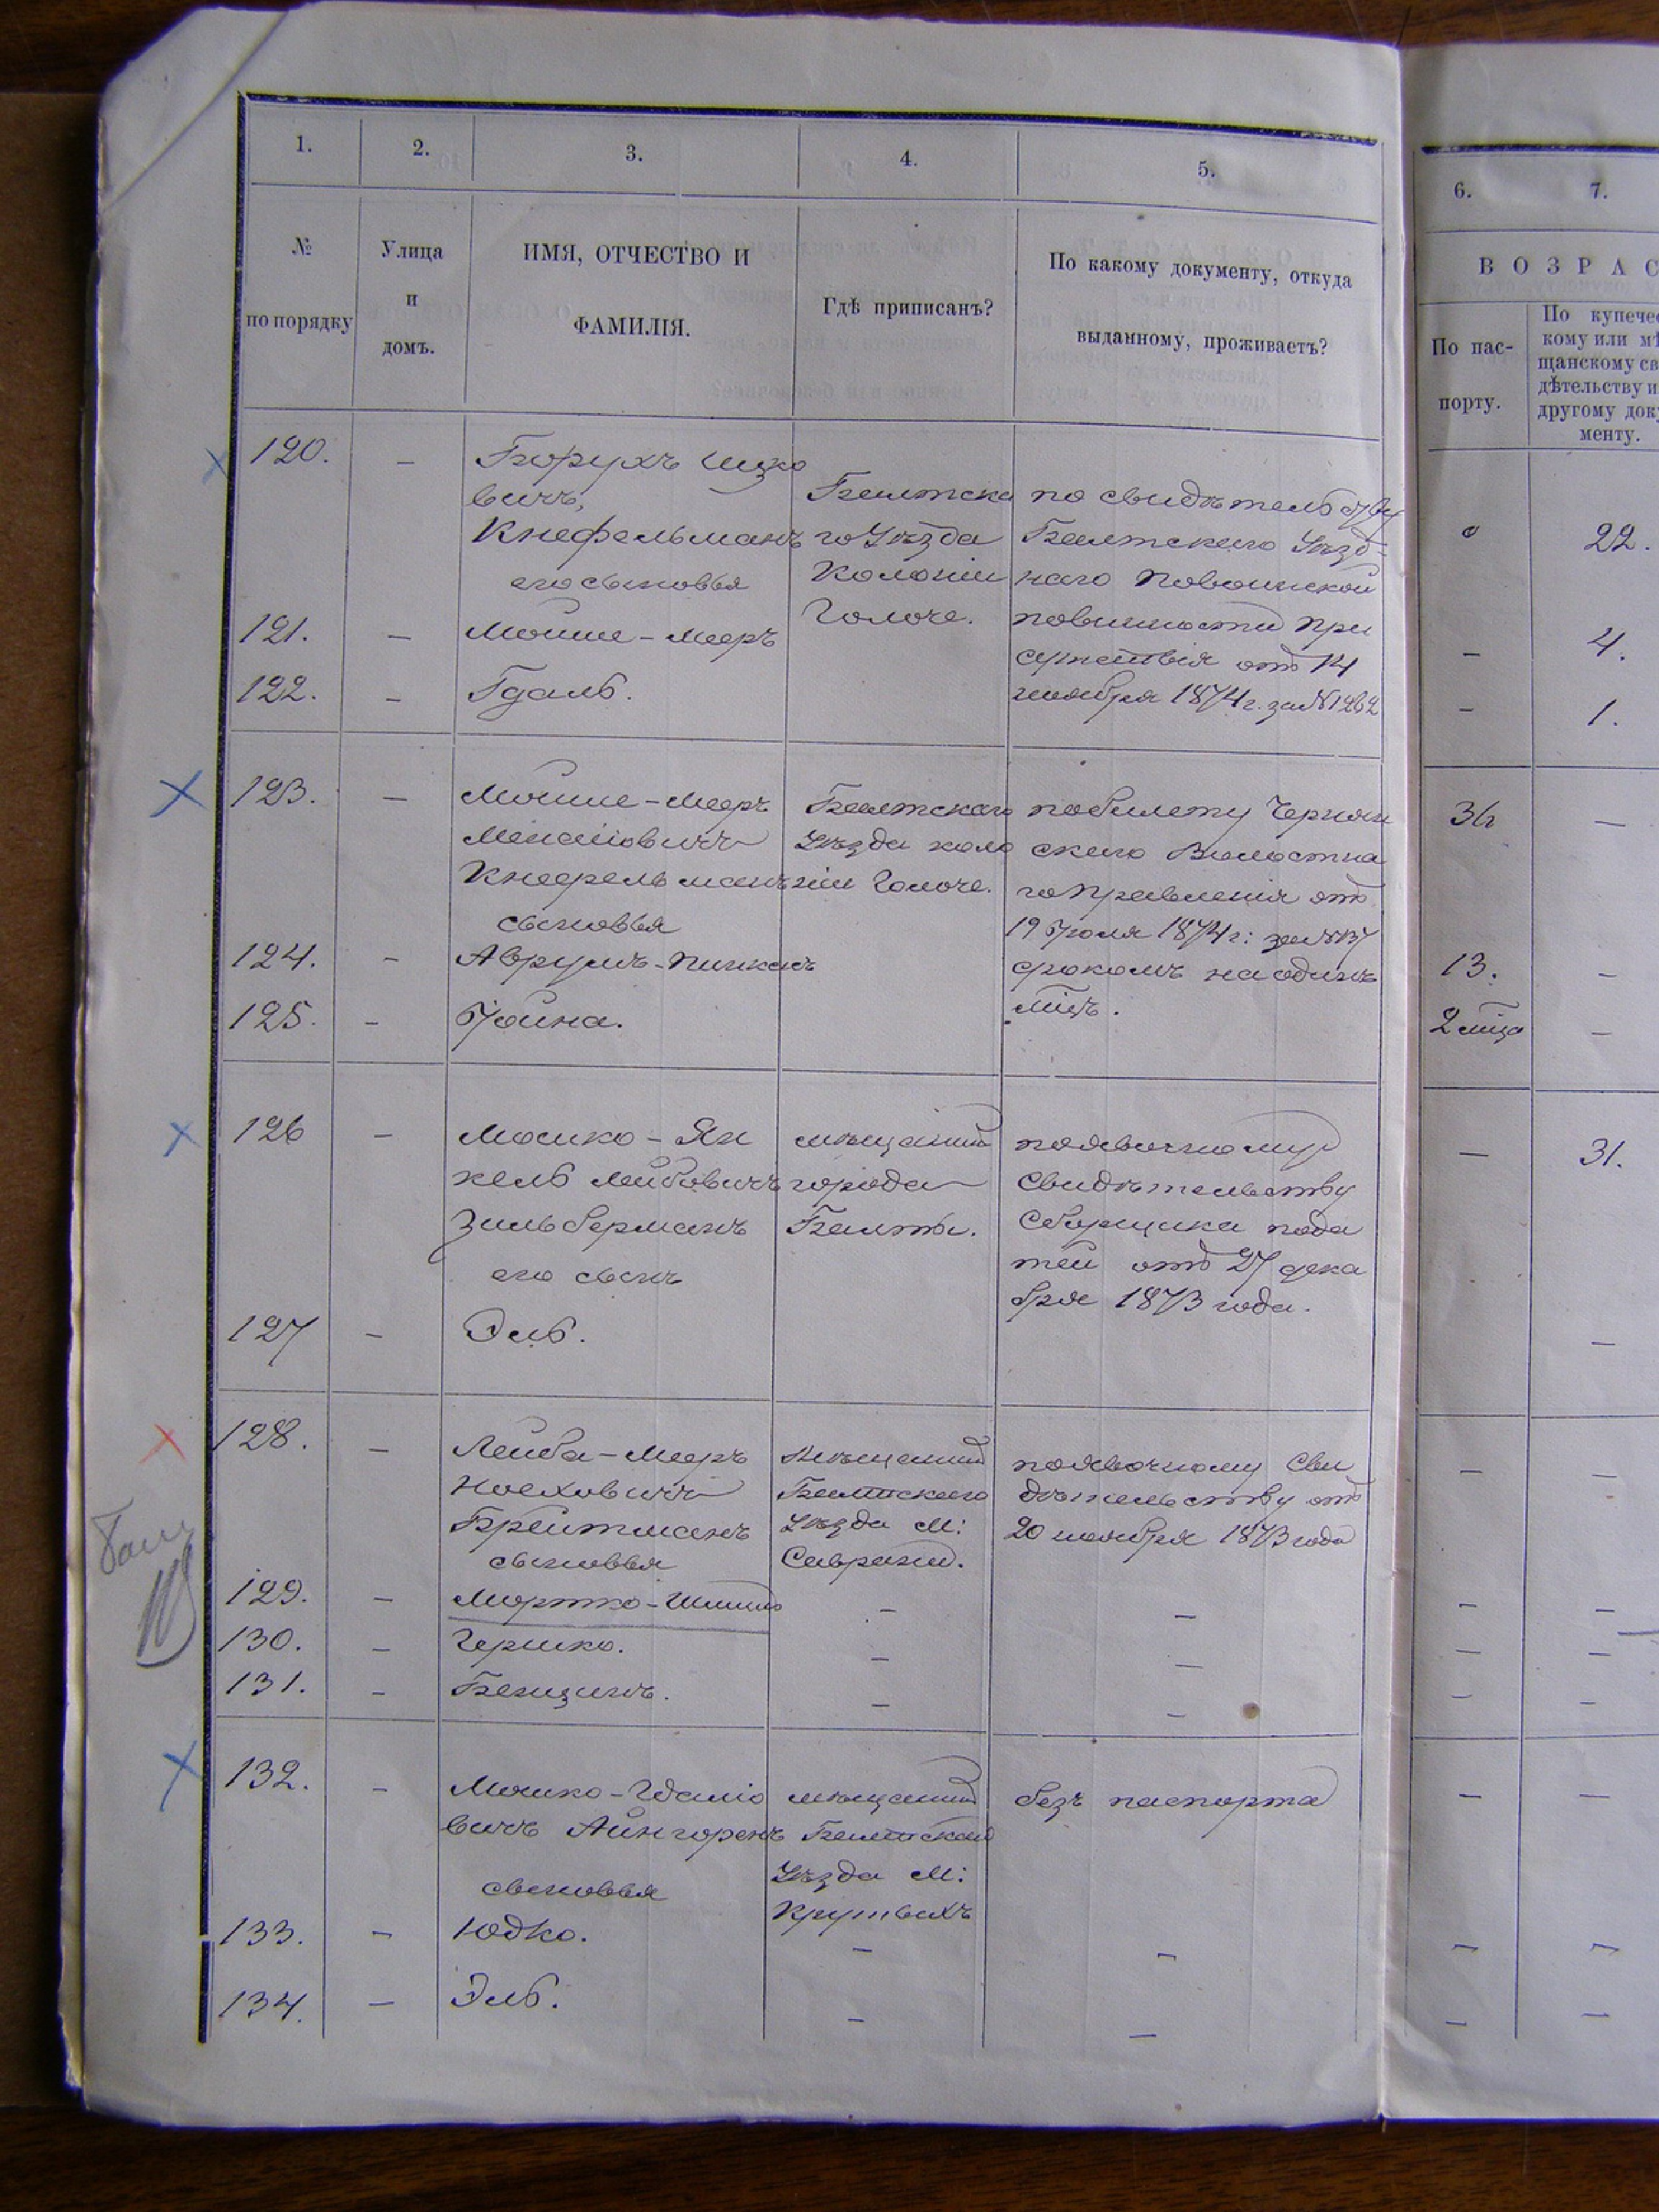 1. 2. 3. 4. 5. 6. 7.
№ по порядку
Улица и домъ.
ИМЯ, ОТЧЕСТВО И ФАМИЛІЯ.
Гдѣ приписанъ?
По какому документу, откуда выданному, проживаетъ?
ВОЗРАС
По пас-
порту.
По купечес
кому или мѣ
щанскому св
дѣтельству и
другому док
менту.
120. — Борухъ Ицко
вичъ,
Кнефельманъ
его сыновья
Балтска
го Уѣзда
Колоніи
Голоче.
по свидѣтельству
Балтскаго Уѣзд-
наго По воинской
повинности При
сутствія отъ 14
ноября 1874 г. за №1262
22.
121. — Мойше-Мееръ — 4.
122. — Гдаль. — 1.
123. — Мойше-Мееръ
Кнефельманъ
сыновья
Балтскаго
Уѣзда коло
ніи Голоче.
по билету Чернян
скаго Волостна
го Правленія отъ
19 Іюля 1874 г: за №137
срокомъ на одинъ
мѣц.
36 —
124. — Аврумъ-Пинкасъ 13. —
125. — Іойна. 2 мѣца —
126 — Мошко-Ян
кель Лейбовичъ
Зильберманъ
его сынъ
мѣщанинъ
города
Балты.
по явочному
свидѣтельству
Сборщика пода
тей отъ 27 дека
бря 1873 года.
— 31.
127 — Эль. —
128. — Лейба-Мееръ
Ноеховичъ
Брейтманъ
сыновья
мѣщанинъ
Балтскаго
Уѣзда М:
Саврани.
по явочному сви
дѣтельству отъ
20 ноября 1873 года
— —
129. — Мортко-Шмиль — — — —
130. — Гершко. — — — —
131. — Бенционъ. — — — —
132. — Мошко-Гдаліо
вичъ Айнгоренъ
сыновья
мѣщанинъ
Балтскаго
Уѣзда М:
Крутыхъ
безъ паспорта
— —
133. — Юдко. — — — —
134. — Эль. — — — —